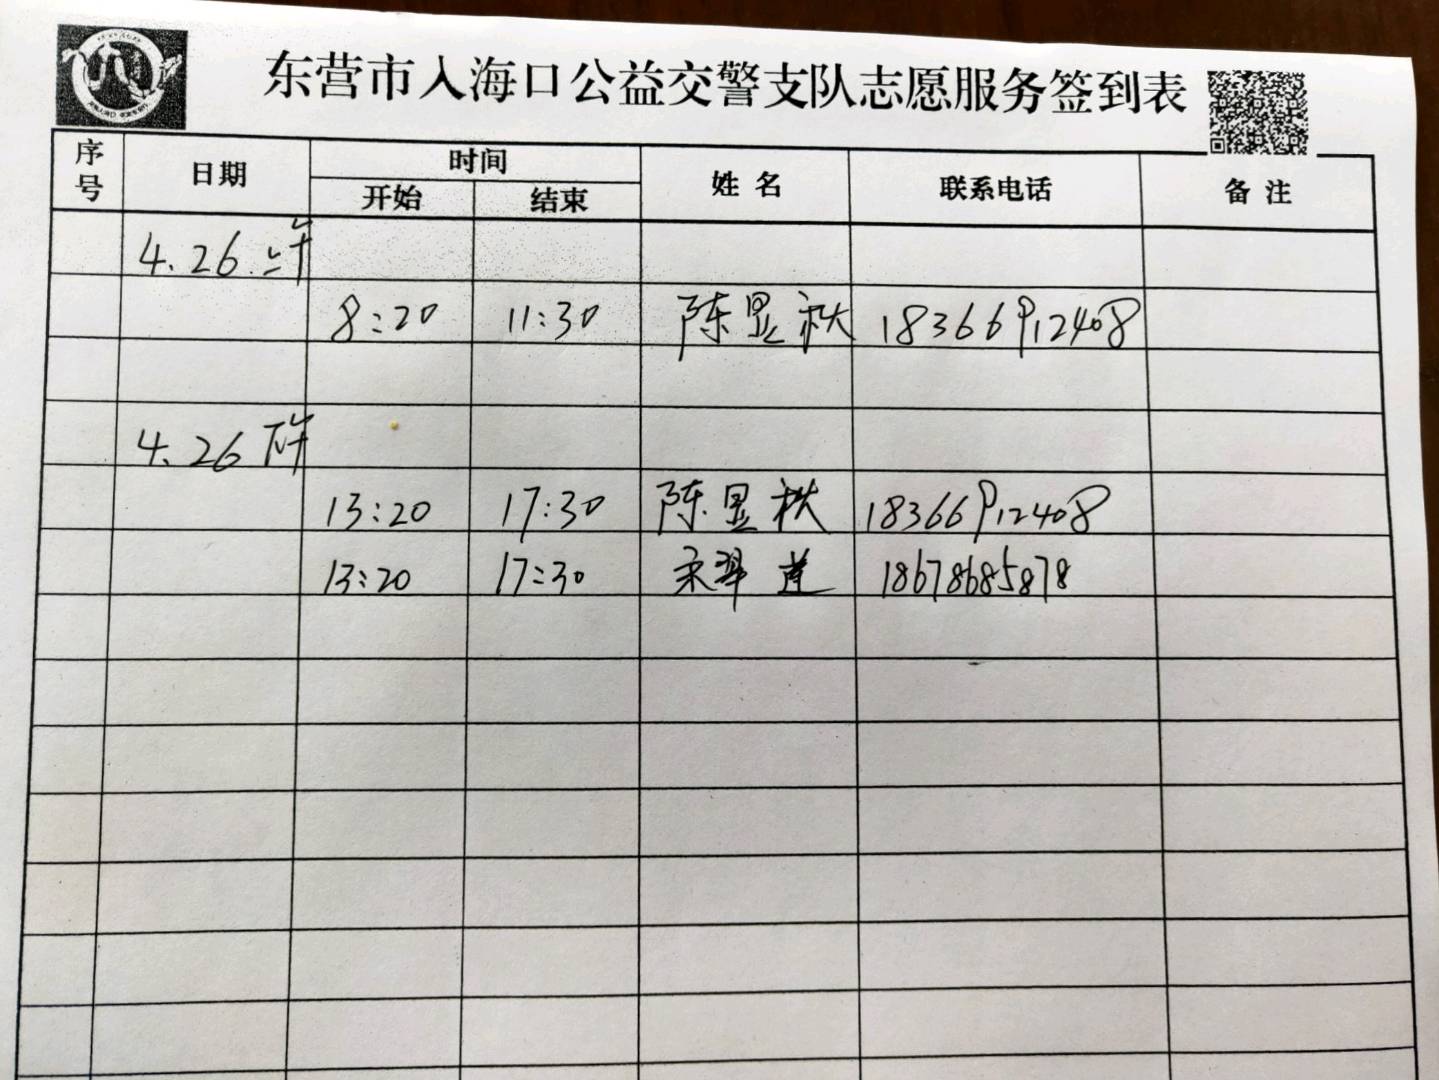 东营市入海口公益交警支队志愿服务签到表
序号 日期 时间 姓名 联系电话 备注
开始 结束
4.26 上午
8:20 11:30 陈显秋 18366912408
4.26 下午
13:20 17:30 陈显秋 18366912408
13:20 17:30 宋翠莲 18678685878